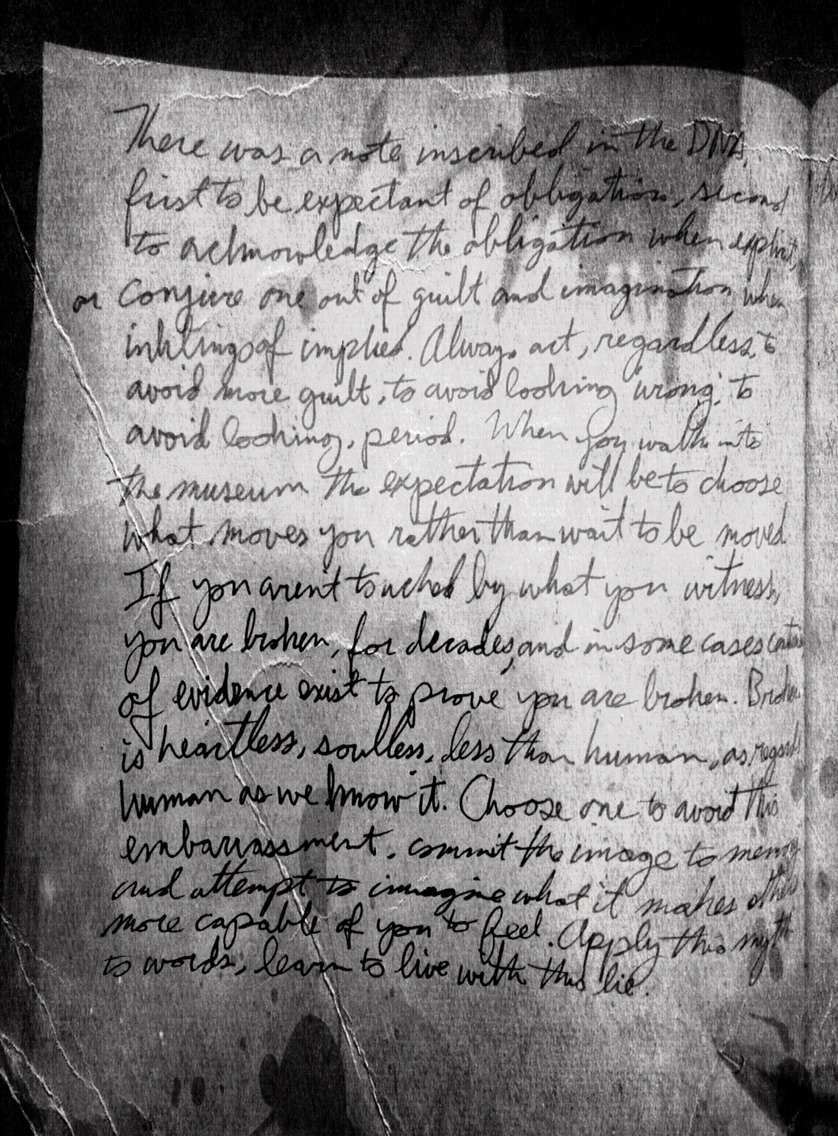 There was a note inscribed in the DNA,
first to be expectant of obligation, second
to acknowledge the obligation when explicit,
or conjure one out of guilt and imagination when
inklings of implied. Always act, regardless, to
avoid more guilt, to avoid looking 'wrong', to
avoid looking, period. When you walk into
the museum the expectation will be to choose
what moves you rather than wait to be moved
If you arent touched by what you witness,
you are broken, for decades, and in some cases
of evidence exist to prove you are broken. Broken
is heartless, soulless, less than human, as regards
human as we know it. Choose one to avoid this
embarrassment, commit the image to memory
and attempt to imagine what it makes others
more capable of you to feel. Apply this myth
to words, learn to live with this lie.